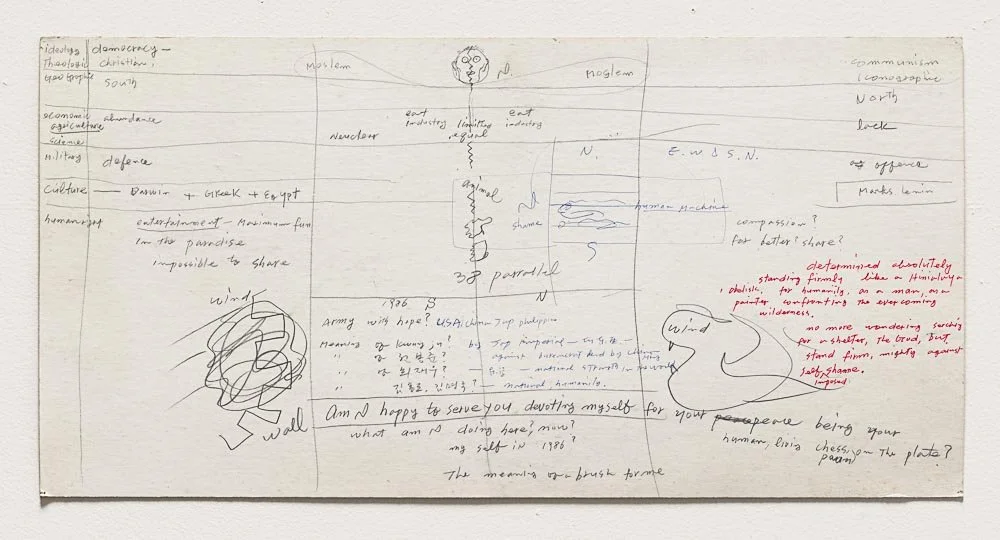 ideology democracy — communism
Theologic christian, Moslem N. Moslem Iconographic
Geographic South North
economic abundance eat eat lack
agriculture industry limited industry
Neuclear equal
science
military defence N. E.W & S.N. offence
culture — Darwin + Greek + Egypt animal Marks Lenin
human machine
humanright entertainment - Maximum fun shame compassion?
in the paradise for better? share?
impossible to share S
38 parrallel
determined absolutely
standing firmly like a Himalaya
obelisk, for humanity, as a man, as a
painter confronting the evercoming
wilderness.
wind 1986 S N
Army with hope? USA china Jap philippin
wind
no more wondering serching
for a shelter, the God, but
stand firm, mighty against
self shame.
imposed
Meaning of by Jap
" 전봉준? — against
" 최재우? — national strength
" 김홍도, 김명국? — national, humanity.
wall
Am I happy to serve you, devoting myself for your peace being your
what am I doing here, now? human, living chess pawn on the plate?
my self in 1986?
The meaning of a brush for me